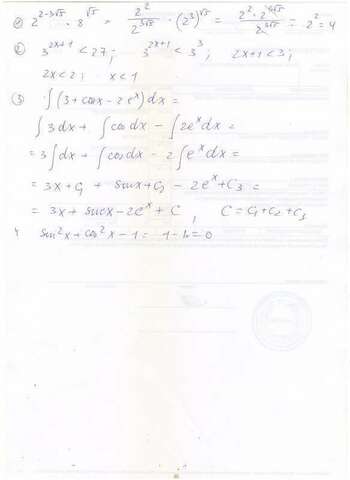 ① 2^(2-3√5) · 8^(√5) = 2^2 / 2^(3√5) · (2^3)^(√5) = 2^2 · 2^(3√5) / 2^(3√5) = 2^2 = 4
② 3^(2x+1) < 27; 3^(2x+1) < 3^3; 2x+1 < 3;
2x < 2; x < 1
③ ∫(3+cosx-2e^x)dx =
∫3dx + ∫cosdx - ∫2e^x dx =
= 3∫dx + ∫cosdx - 2∫e^x dx =
= 3x + C₁ + sinx + C₂ - 2e^x + C₃ =
= 3x + sinx - 2e^x + C, C = C₁ + C₂ + C₃
4 sin²x + cos²x - 1 = 1 - 1 = 0